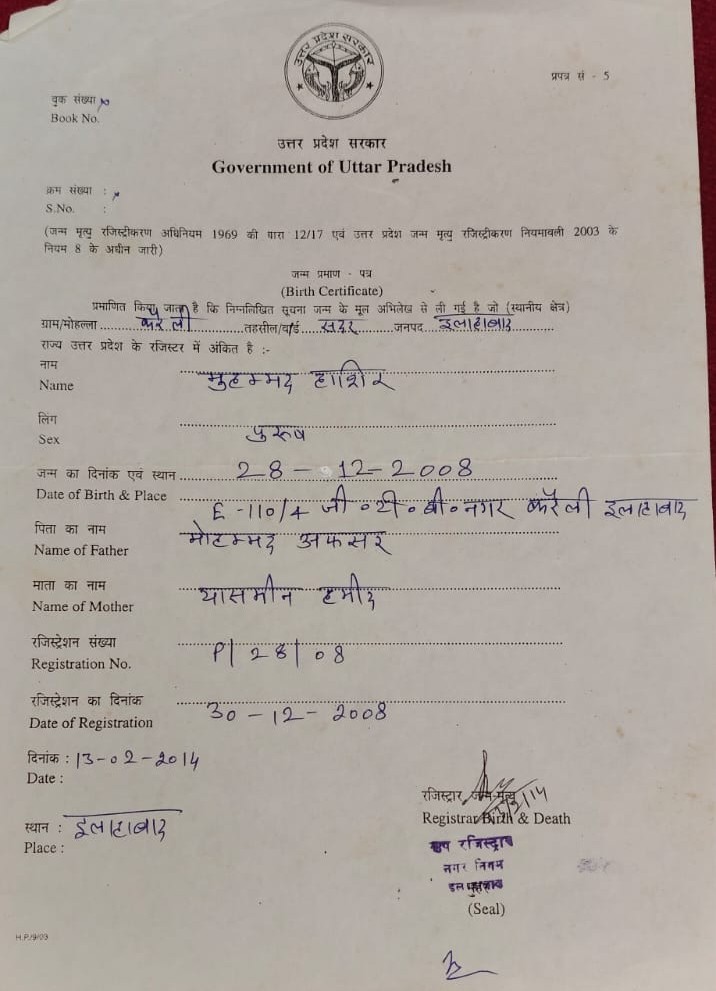 उत्तर प्रदेश सरकार
प्रपत्र सं - 5
बुक संख्या
Book No.
उत्तर प्रदेश सरकार
Government of Uttar Pradesh
क्रम संख्या :
S.No. :
(जन्म मृत्यु रजिस्ट्रीकरण अधिनियम 1969 की धारा 12/17 एवं उत्तर प्रदेश जन्म मृत्यु रजिस्ट्रीकरण नियमावली 2003 के
नियम 8 के अधीन जारी)
जन्म प्रमाण - पत्र
(Birth Certificate)
प्रमाणित किया जाता है कि निम्नलिखित सूचना जन्म के मूल अभिलेख से ली गई है जो (स्थानीय क्षेत्र)
ग्राम/मोहल्ला करेली तहसील/वार्ड सदर जनपद इलाहाबाद
राज्य उत्तर प्रदेश के रजिस्टर में अंकित है :-
नाम
Name मुहम्मद हाशिर
लिंग
Sex पुरूष
जन्म का दिनांक एवं स्थान 28-12-2008
Date of Birth & Place E-110/4 जी०टी०बी०नगर करैली इलाहाबाद
पिता का नाम
Name of Father मोहम्मद अफसर
माता का नाम
Name of Mother यासमीन हमीद
रजिस्ट्रेशन संख्या
Registration No. P/28/08
रजिस्ट्रेशन का दिनांक
Date of Registration 30-12-2008
दिनांक : 13-02-2014
Date :
स्थान : इलाहाबाद
Place :
रजिस्ट्रार, जन्म-मृत्यु
Registrar Birth & Death
उप रजिस्ट्रार
नगर निगम
इलाहाबाद
(Seal)
H.P./9/09